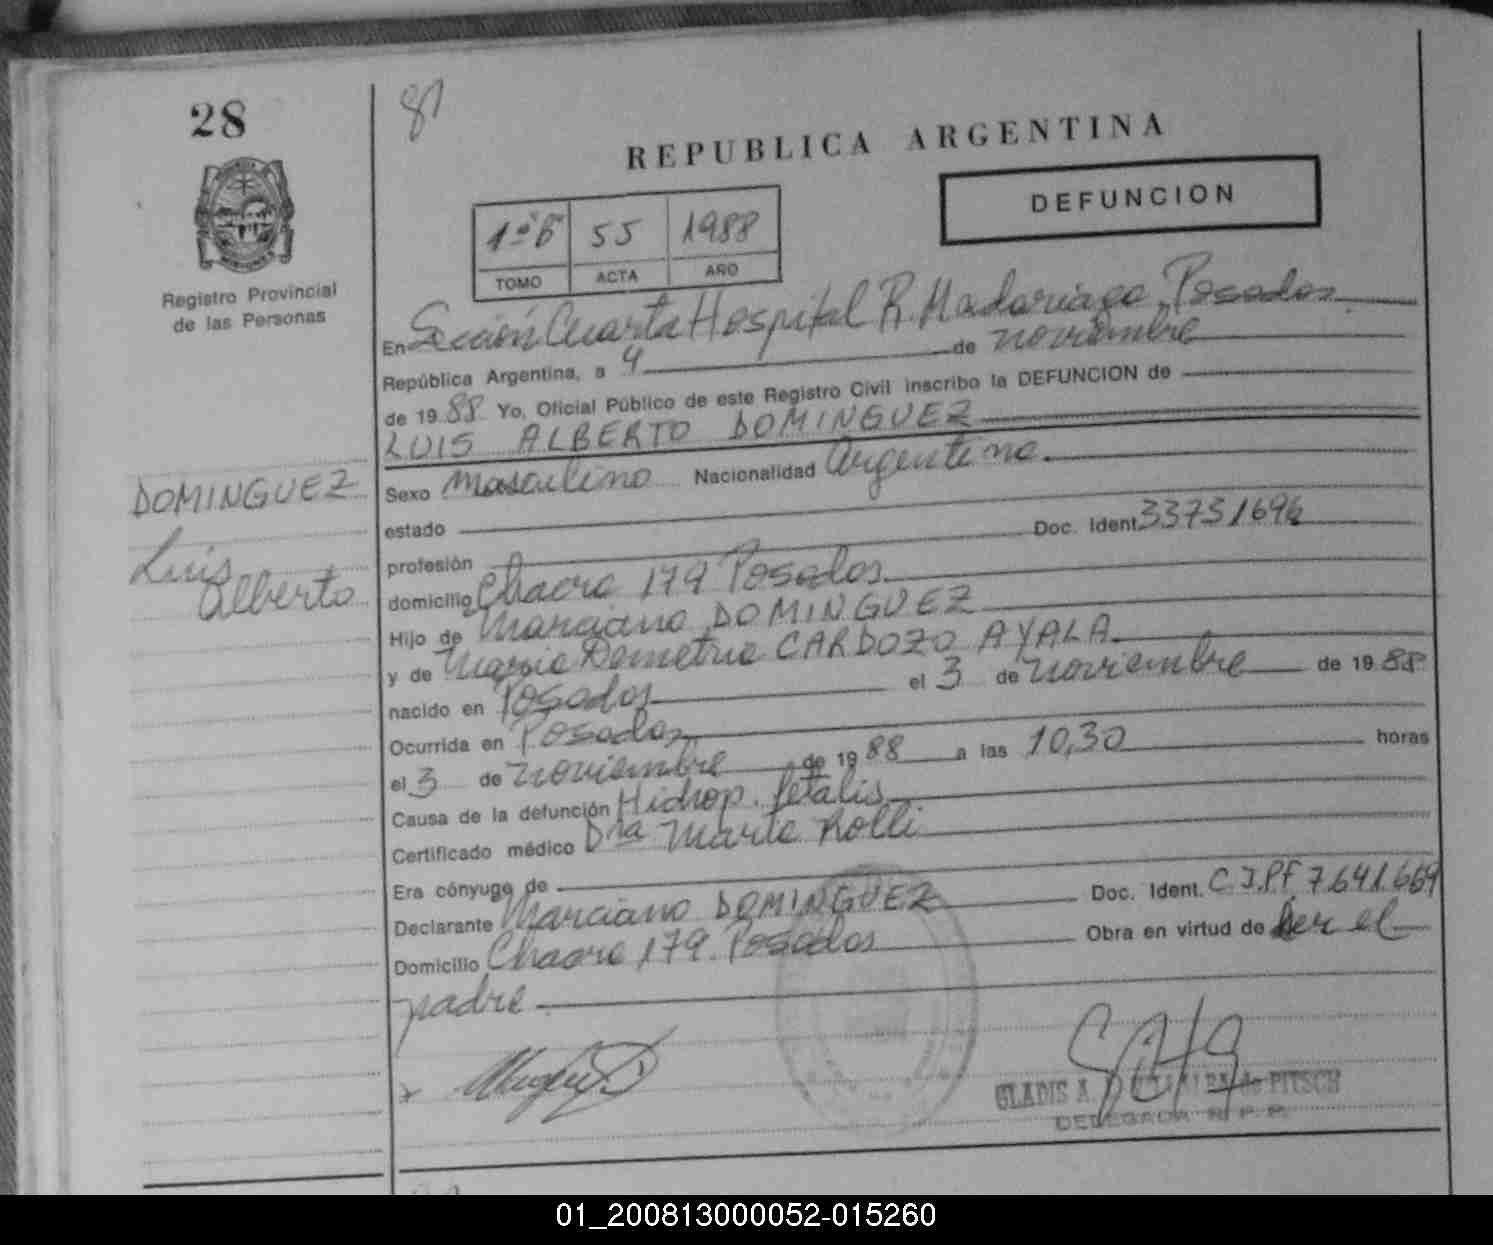 28
87
REPUBLICA ARGENTINA
DEFUNCION
1º "B" 55 1988
TOMO ACTA AÑO
Registro Provincial
de las Personas
En Sección Cuarta Hospital R. Madariaga, Posadas
República Argentina, a 4 de noviembre
de 1988 Yo, Oficial Público de este Registro Civil inscribo la DEFUNCION de
LUIS ALBERTO DOMINGUEZ
DOMINGUEZ
Luis
Alberto
Sexo Masculino Nacionalidad Argentina
estado Doc. Ident. 33731696
profesión
domicilio Chacra 179 Posadas
Hijo de Marciano DOMINGUEZ
y de María Demetria CARDOZO AYALA
nacido en Posadas el 3 de noviembre de 1988
Ocurrida en Posadas
el 3 de noviembre de 1988 a las 10,30 horas
Causa de la defunción Hidrop. fetalis
Certificado médico Dra Marta Rolli
Era cónyuge de
Declarante Marciano DOMINGUEZ Doc. Ident. C.I.P.F 7.641.669
Domicilio Chacra 179. Posadas Obra en virtud de ser el
padre
GLADIS A. de PITSCH
DELEGADA R. P. P.
01_200813000052-015260